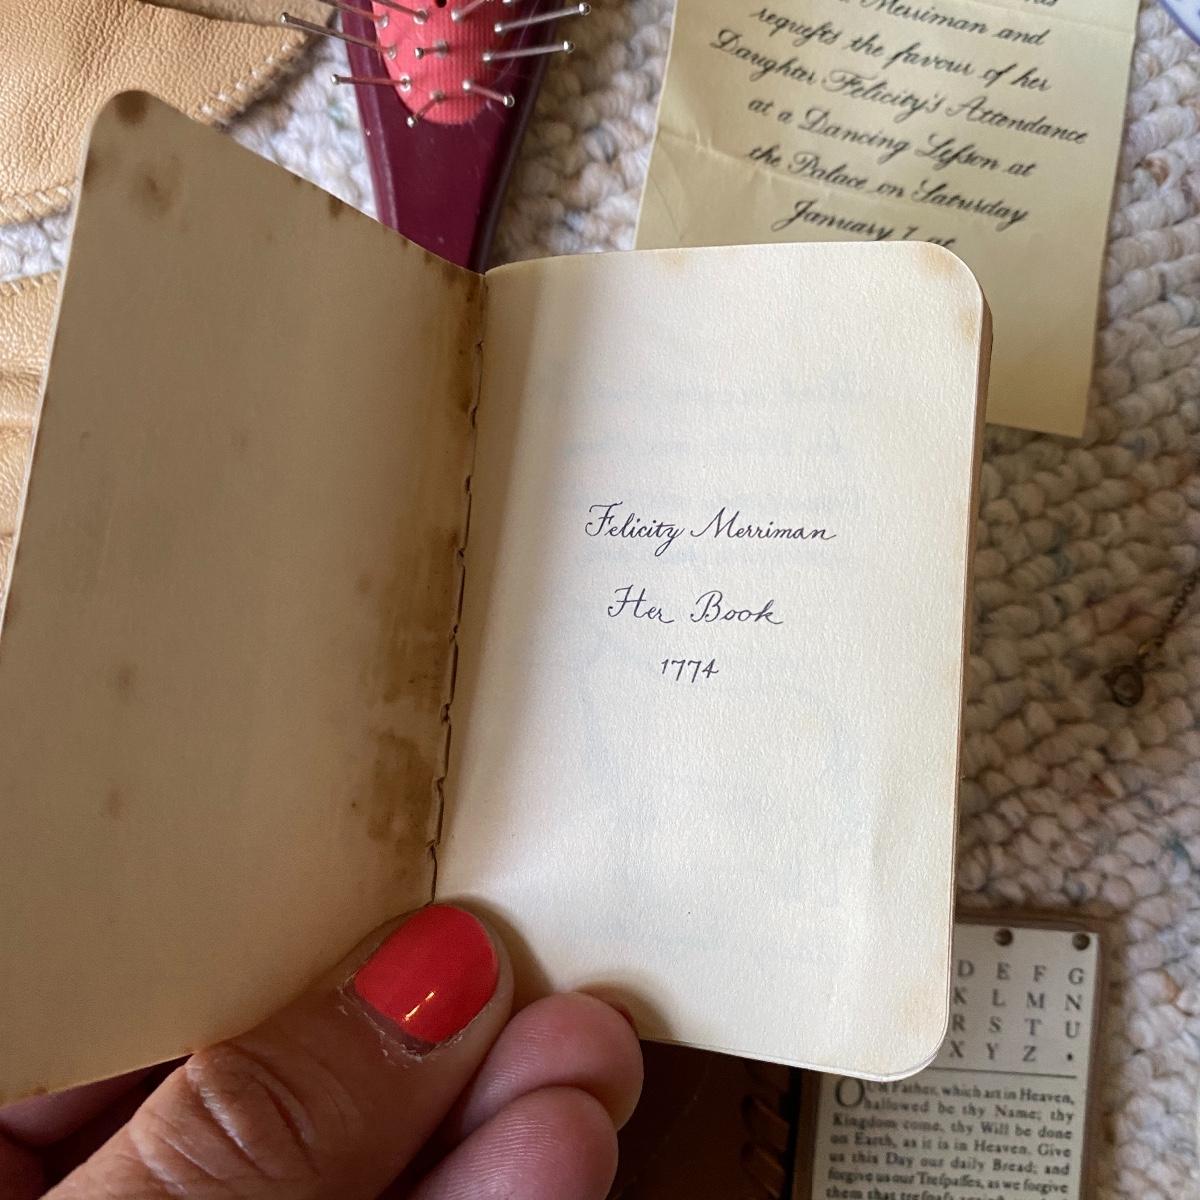 Merriman and
requeſts the favour of her
Daughter Felicity's Attendance
at a Dancing Leſson at
the Palace on Saturday
January 7 at
Felicity Merriman
Her Book
1774
D E F G
K L M N
R S T U
X Y Z .
Our Father, which art in Heaven,
hallowed be thy Name; thy
Kingdom come, thy Will be done
on Earth, as it is in Heaven. Give
us this Day our daily Bread; and
forgive us our Treſpaſſes, as we forgive
them that treſpaſs